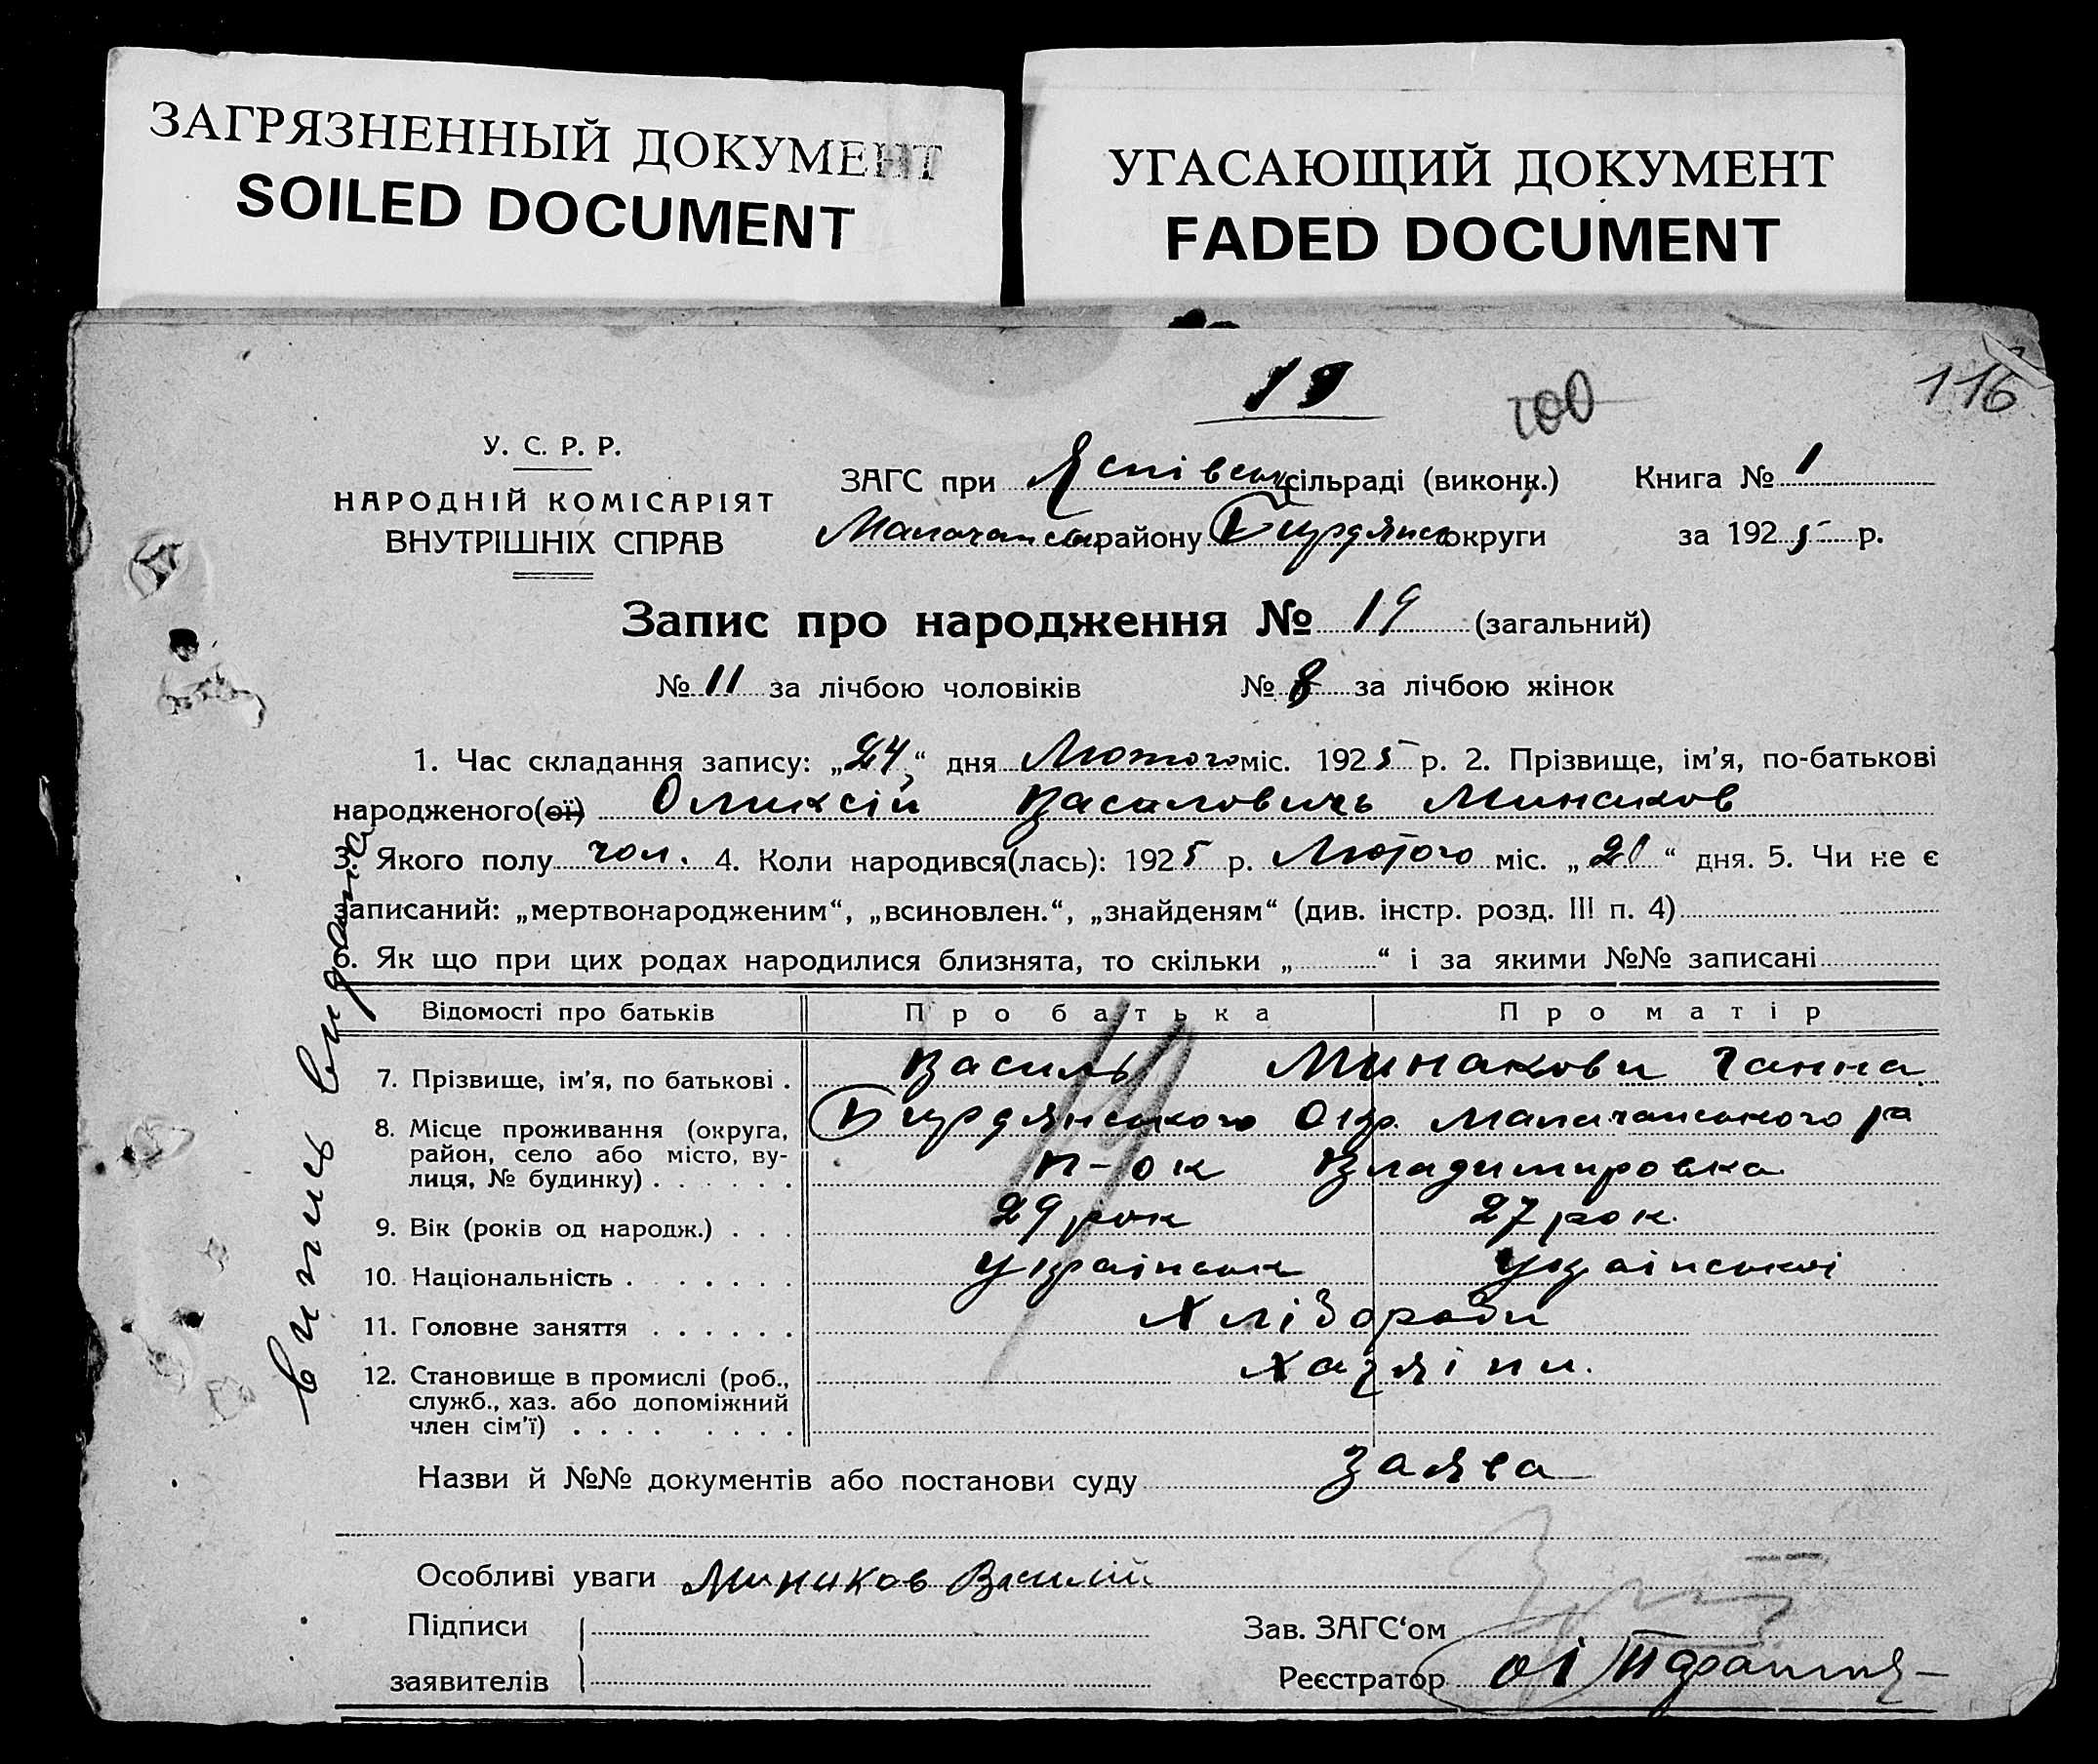 ЗАГРЯЗНЕННЫЙ ДОКУМЕНТ
SOILED DOCUMENT
УГАСАЮЩИЙ ДОКУМЕНТ
FADED DOCUMENT
19
100
116
У. С. Р. Р.
НАРОДНІЙ КОМІСАРІЯТ
ВНУТРІШНІХ СПРАВ
ЗАГС при сільраді (виконк.) Книга № 1
району округи за 1925 р.
Запис про народження № 19 (загальний)
№ 11 за лічбою чоловіків № 8 за лічбою жінок
1. Час складання запису: „24“ дня Лютого міс. 1925 р. 2. Прізвище, ім'я, по-батькові
народженого(ої) Оликсій Василовичь Минаков
3. Якого полу чол. 4. Коли народився(лась): 1925 р. Лютого міс. „20“ дня. 5. Чи не є
записаний: „мертвонародженим“, „всиновлен.“, „знайденям“ (див. інстр. розд. III п. 4)
6. Як що при цих родах народилися близнята, то скільки „ “ і за якими №№ записані
Відомості про батьків Про батька Про матір
7. Прізвище, ім'я, по батькові . Василь Минакови Ганна
8. Місце проживання (округа, Бирдянського Окр. Малачанського ра
район, село або місто, ву- п-ок Владимировка
лиця, № будинку) . . . . . .
9. Вік (років од народж.) . . . 29 рок 27 рок.
10. Національність . . . . . . . Українськ Українські
11. Головне заняття . . . . . . Хліборобы
12. Становище в промислі (роб., Хазяіни.
служб., хаз. або допоміжний
член сім'ї) . . . . . . . .
Назви й №№ документів або постанови суду Заява
Особливі уваги Минаков Василий
Підписи Зав. ЗАГС'ом
заявителів Реєстратор
випись видана